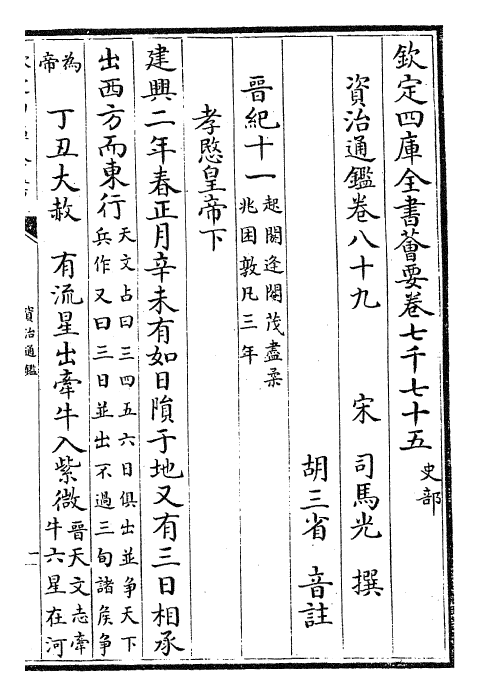 欽定四庫全書薈要卷七千七十五 史部
資治通鑑卷八十九
宋 司馬光 撰
胡三省 音註
晉紀十一 起閼逢閹茂盡柔兆困敦凡三年
孝愍皇帝下
建興二年春正月辛未有如日隕于地又有三日相承
出西方而東行 天文占曰三四五六日俱出並争天下兵作又曰三日並出不過三旬諸侯争
為帝 丁丑大赦 有流星出牽牛入紫微 晉天文志牽牛六星在河
資治通鑑
一